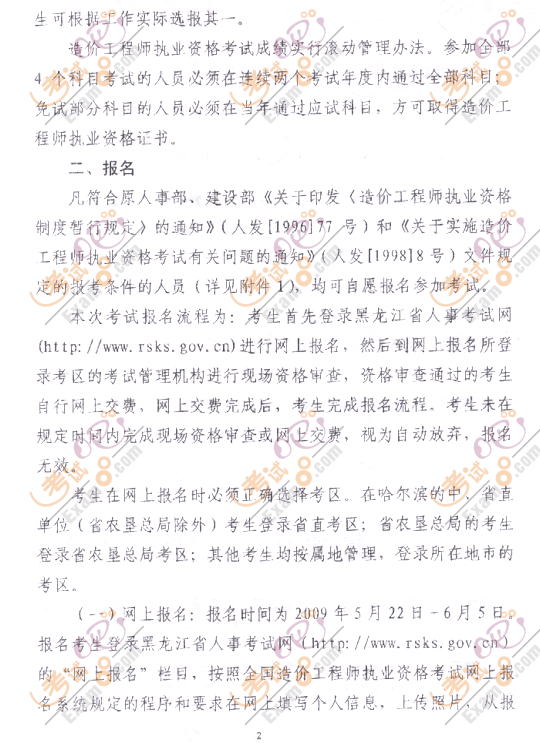 生可根据工作实际选报其一。
造价工程师执业资格考试成绩实行滚动管理办法。参加全部
4 个科目考试的人员必须在连续两个考试年度内通过全部科目；
免试部分科目的人员必须在当年通过应试科目，方可取得造价工
程师执业资格证书。
二、报名
凡符合原人事部、建设部《关于印发〈造价工程师执业资格
制度暂行规定〉的通知》（人发[1996]77 号）和《关于实施造价
工程师执业资格考试有关问题的通知》（人发[1998]8 号）文件规
定的报考条件的人员（详见附件 1），均可自愿报名参加考试。
本次考试报名流程为：考生首先登录黑龙江省人事考试网
(http://www.rsks.gov.cn)进行网上报名，然后到网上报名所登
录考区的考试管理机构进行现场资格审查，资格审查通过的考生
自行网上交费，网上交费完成后，考生完成报名流程。考生未在
规定时间内完成现场资格审查或网上交费，视为自动放弃，报名
无效。
考生在网上报名时必须正确选择考区。在哈尔滨的中、省直
单位（省农垦总局除外）考生登录省直考区；省农垦总局的考生
登录省农垦总局考区；其他考生均按属地管理，登录所在地市的
考区。
（一）网上报名：报名时间为 2009 年 5 月 22 日－6 月 5 日。
报名考生登录黑龙江省人事考试网（http://www.rsks.gov.cn）
的“网上报名”栏目，按照全国造价工程师执业资格考试网上报
名系统规定的程序和要求在网上填写个人信息，上传照片，从报
2